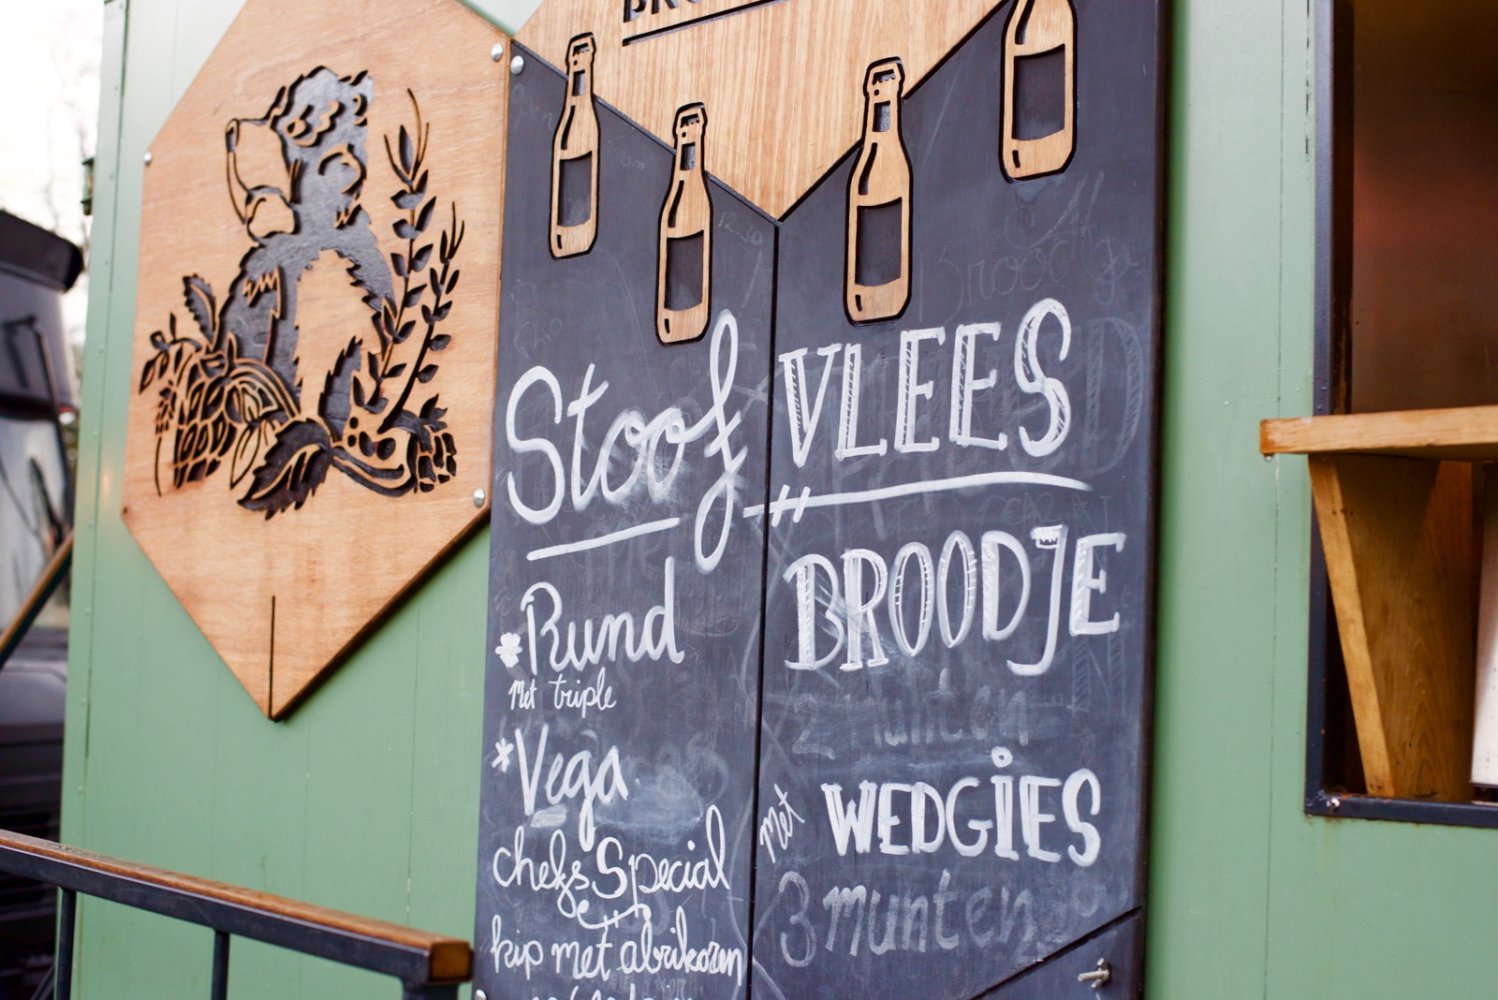 Stoof VLEES
BROODJE
*Rund
Met triple
2 munten
*Vega
met WEDGIES
chefs Special
3 munten
kip met abrikozen
12.30